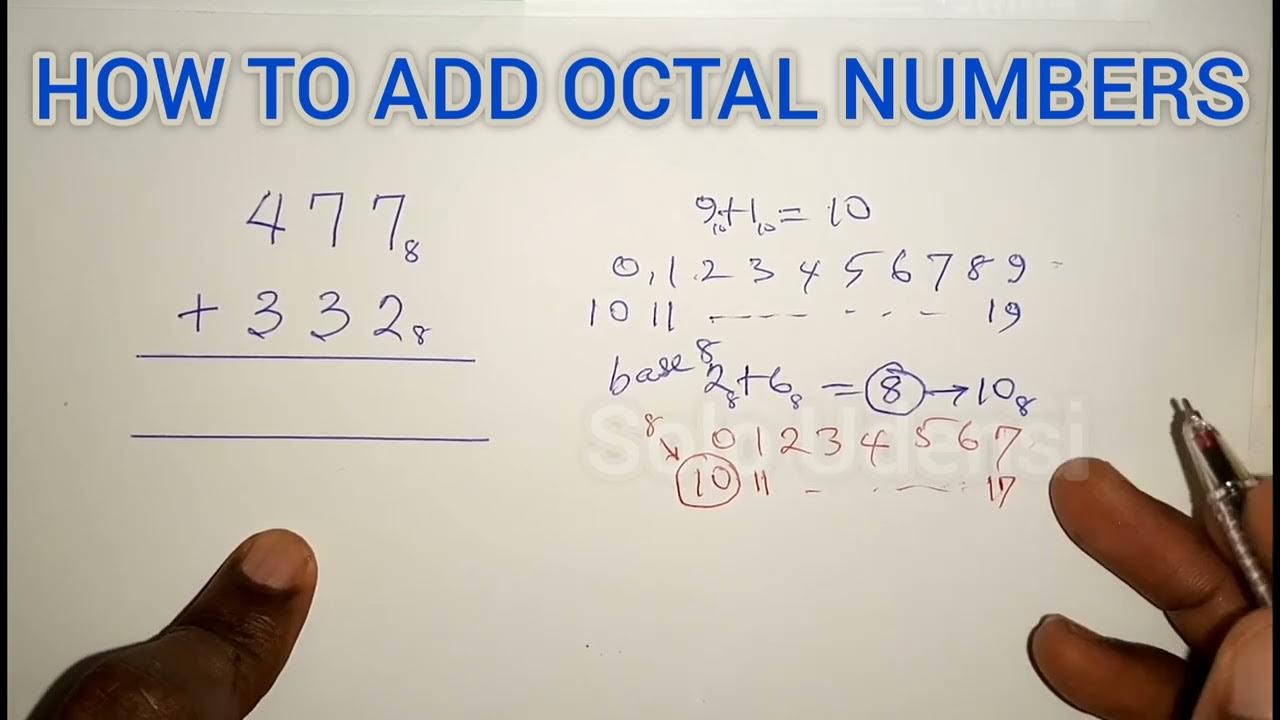 HOW TO ADD OCTAL NUMBERS
477₈
+ 332₈
9₁₀+1₁₀ = 10
0,1 2 3 4 5 6 7 8 9
10 11 ---- - - - 19
base 8
2₈+6₈ = 8 → 10₈
8 0 1 2 3 4 5 6 7
10 11 - - -- 17
Solo Udensi